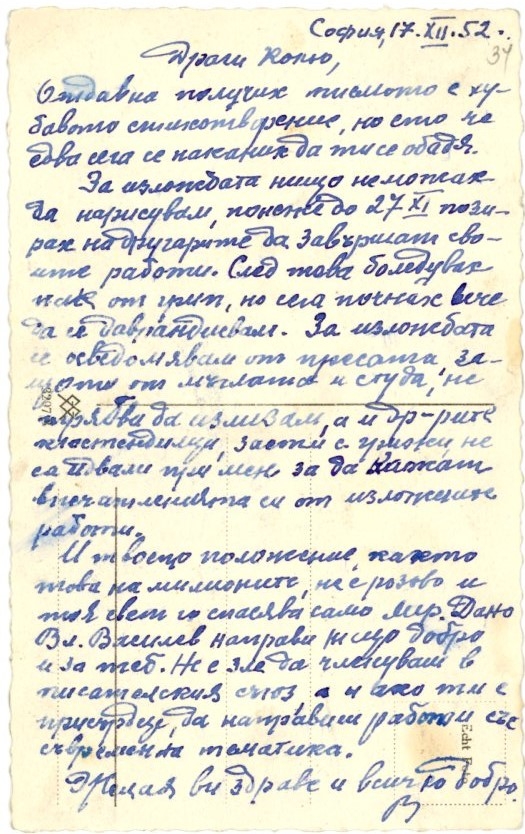 София, 17.XII.52.
34
Драги Колю,
Отдавна получих писмото с ху-
бавото стихотворение, но ето че
едва сега се наканих да ти се обадя.
За изложбата нищо не можах
да нарисувам, понеже до 27 XI пози-
рах на другарите да завършат сво-
ите работи. След това боледувах
пак от грип, но сега почнах вече
да се даврандисвам. За изложбата
се осведомявам от пресата, за-
щото от мъглата и студа, не
трябва да излизам, а и др-рите
кюстендилци, заети с грижи, не
са идвали при мен за да кажат
впечатленията си от изложените
работи.
И твоето положение, както
това на милионите, не е розово и
тоя свет го спасява само мир. Дано
Вл. Василев направи нещо добро
и за теб. Не е зле да членуваш в
писателския съюз, а и ако ти е
присърдце, да направиш работи със
съвременна тематика.
Желая ви здраве и всичко добро.
3207
Echt Foto